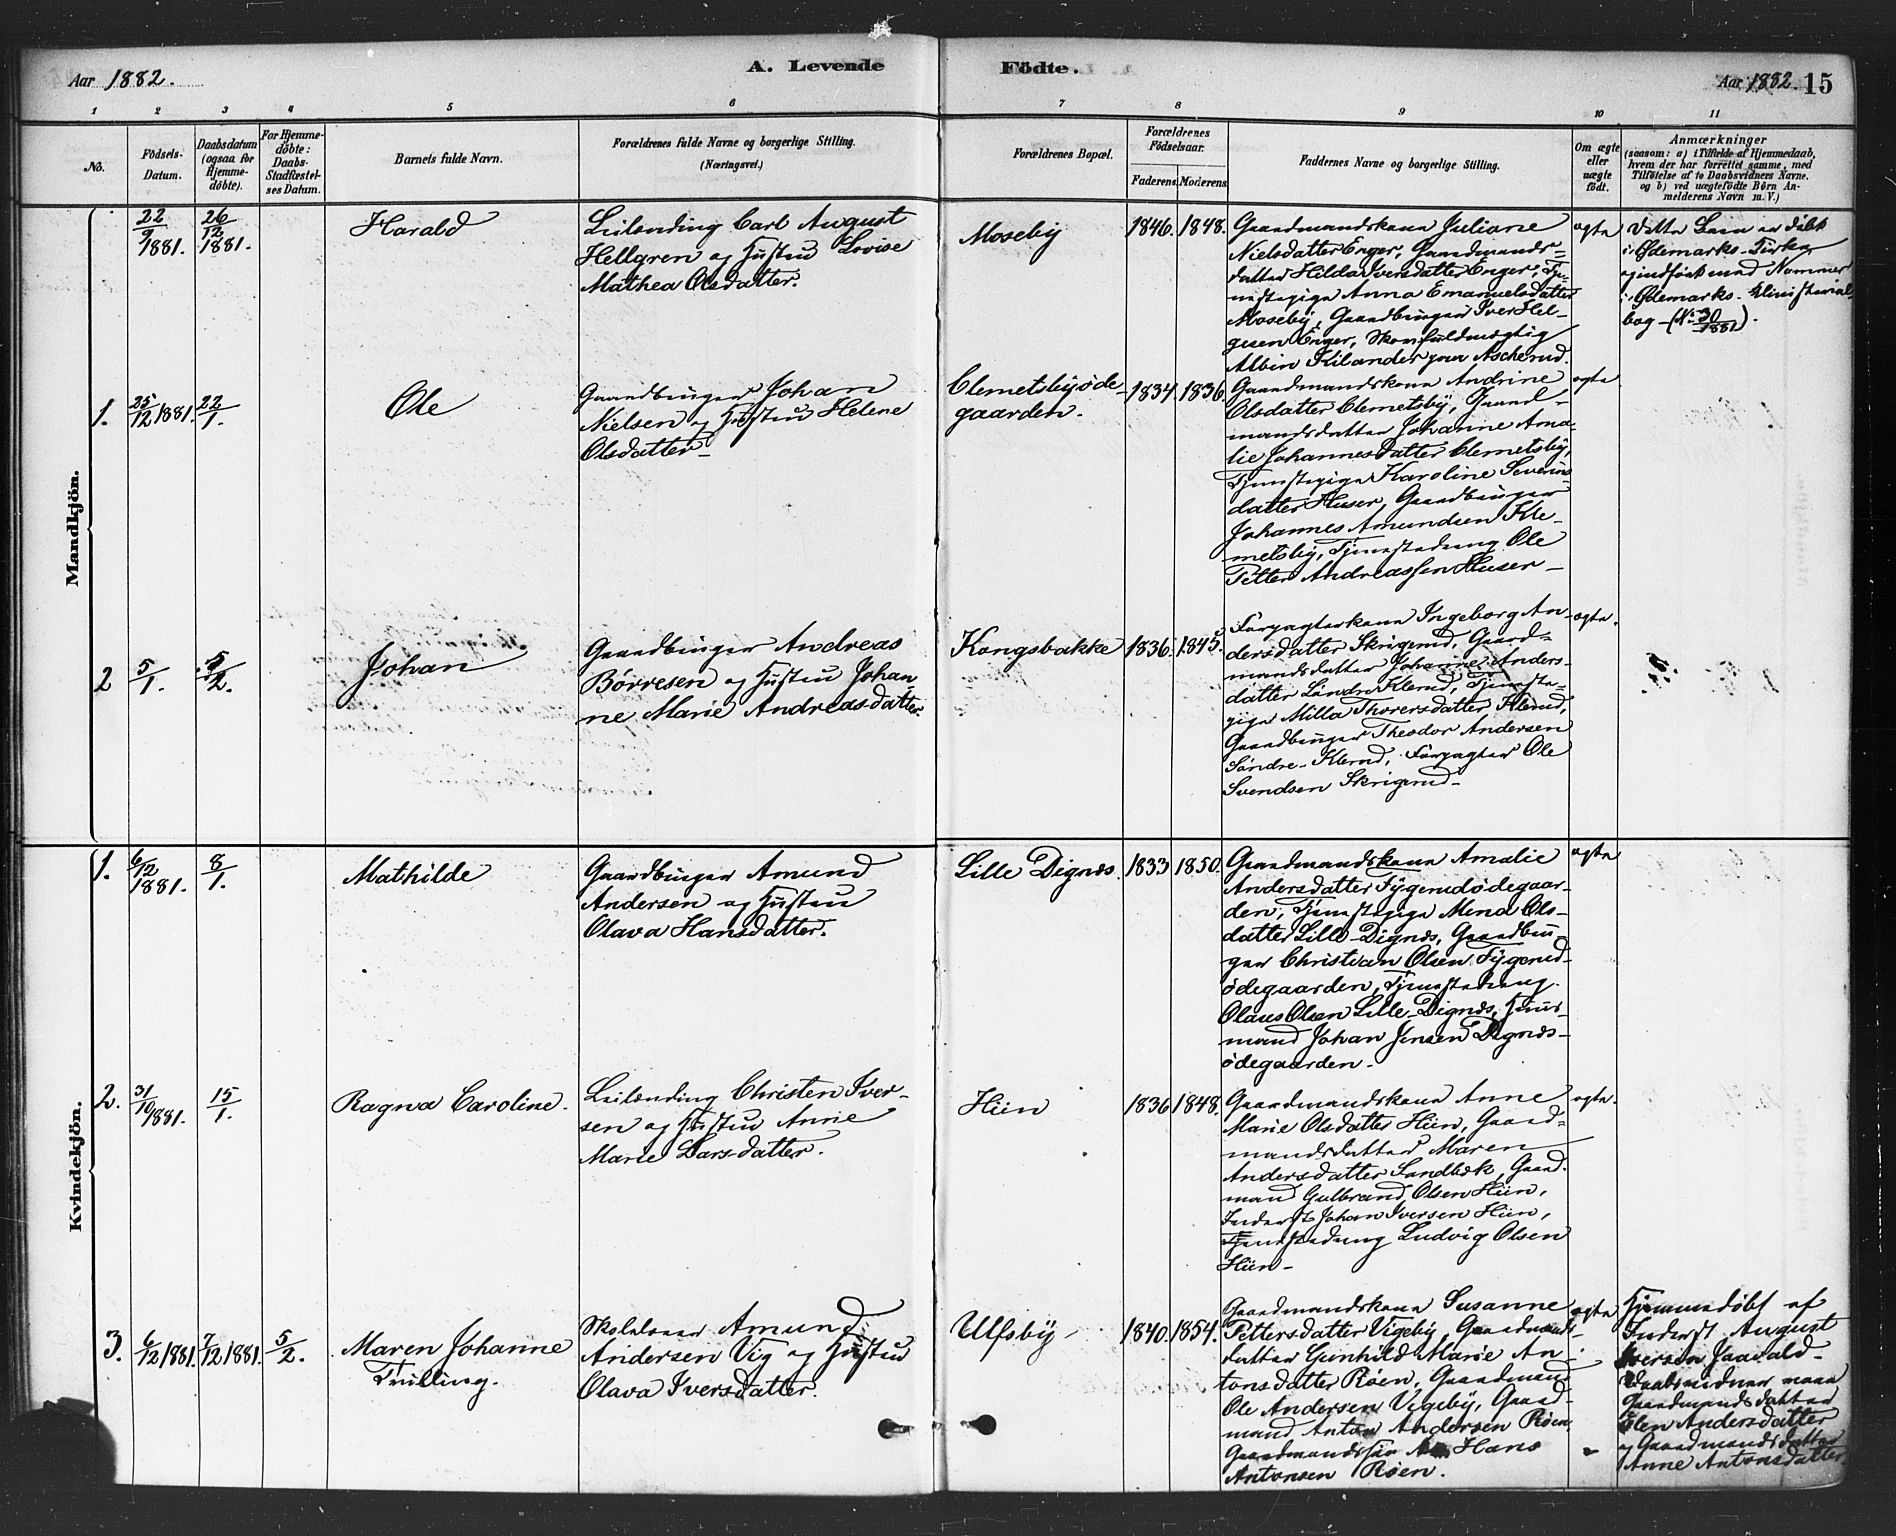 Aar 1882.
A. Levende Födte.
Aar 1882. 15
1 2 3 4 5 6 7 8 9 10 11
No.
Födsels-
Datum.
Daabsdatum
(ogsaa for
Hjemme-
döbte).
For Hjemme-
döbte:
Daabs-
Stadfæstel-
ses Datum.
Barnets fulde Navn.
Forældrenes fulde Navne og borgerlige Stilling.
(Næringsvei.)
Forældrenes Bopæl.
Forældrenes
Födselsaar.
Faderens. Moderens.
Faddernes Navne og borgerlige Stilling.
Om ægte
eller
uægte
födt.
Anmærkninger
(saasom: a) i Tilfælde af Hjemmedaab,
hvem der har forrettet samme, med
Tilföielse af to Daabsvidners Navne.
og b) ved uægtefödte Börn An-
melderens Navn m. V.)
Mandkjön.
22/9 1881.
26/12 1881.
Harald
Leilænding Carl August
Hellgren og Hustru Lovise
Mathea Olsdatter.
Moseby
1846. 1848.
Gaardmandskone Juliane
Nielsdatter Enger, Gaardmands-
datter Hilda Iversdatter Enger, Tje-
nestepige Anna Emanuelsdatter
Moseby, Gaardbruger Iver Hel-
gesen Enger, Skovfuldmægtig
Albin Kilander paa Ascherud.
ægte
Dette Barn er döbt
i Ödemarks Kirke
og indfört med Nummer
i Ödemarks Ministerial-
bog (No 30/1881).
1.
25/12 1881.
22/1.
Ole
Gaardbruger Johan
Nielsen og Hustru Helene
Olsdatter
Clemetsbyöde-
gaarden.
1834. 1836.
Gaardmandskone Andrine
Olsdatter Clemetsby, Gaard-
mandsdatter Johanne Ama-
lie Johannesdatter Clemetsby,
Tjenestepige Karoline Severins-
datter Huser, Gaardbruger
Johannes Amundsen Kle-
metsby, Tjenestedreng Ole
Petter Andreassen Huser
ægte
2
5/1.
5/2.
Johan
Gaardbruger Andreas
Börresen og Hustru Johan
ne Marie Andreasdatter.
Kongsbakke
1836. 1845.
Forpagterkone Ingeborg An-
dersdatter Skrigerud, Gaard-
mandsdatter Johanne Anders-
datter Söndre Klerud, Tjeneste-
pige Milla Thorersdatter Klerud,
Gaardbruger Theodor Andersen
Söndre-Klerud, Forpagter Ole
Svendsen Skrigerud
ægte.
Kvindekjön.
1.
6/12 1881.
8/1.
Mathilde
Gaardbruger Amund
Andersen og Hustru
Olava Hansdatter.
Lille Dignæs.
1833 1850.
Gaardmandskone Amalie
Andersdatter Tygerudödegaar-
den, Tjenestepige Mena Ols-
datter Lille-Dignæs, Gaardbru-
ger Christian Olsen Tygerud-
ödegaarden, Tjenestedreng
Olaus Olsen Lille-Dignæs,
mand Johan Jensen Dignæs-
ödegaarden.
ægte
2.
31/10 1881.
15/1.
Ragna Caroline.
Leilænding Christen Iver-
sen og Hustru Anne
Marie Larsdatter.
Hiin
1836 1848.
Gaardmandskone Anne
Marie Olsdatter Hiin, Gaard-
mandsdatter Maren
Andersdatter Sandbæk, Gaard-
mand Gulbrand Olsen Hiin,
Inderst Johan Iversen Hiin,
Tjenestedreng Ludvig Olsen
Hiin
ægte.
3.
6/12 1881.
7/12 1881.
5/2.
Maren Johanne
Trilling.
Skolelærer Amund
Andersen Vig og Hustru
Olava Iversdatter.
Ulfsby
1840. 1854.
Gaardmandskone Susanne
Pettersdatter Vigeby, Gaardmands-
datter Gunhild Marie An-
tonsdatter Röen, Gaardmand
Ole Andersen Vigeby, Gaard-
mand Anton Andersen Röen,
Gaardmandssön Hans
Antonsen Röen.
ægte
Hjemmedöbt af
Inderst August
Iversen Jaavald
Daabsvidner vare
Gaardmandsdatter
Olen Andersdatter
og Gaardmandsdatter
Anne Antonsdatter